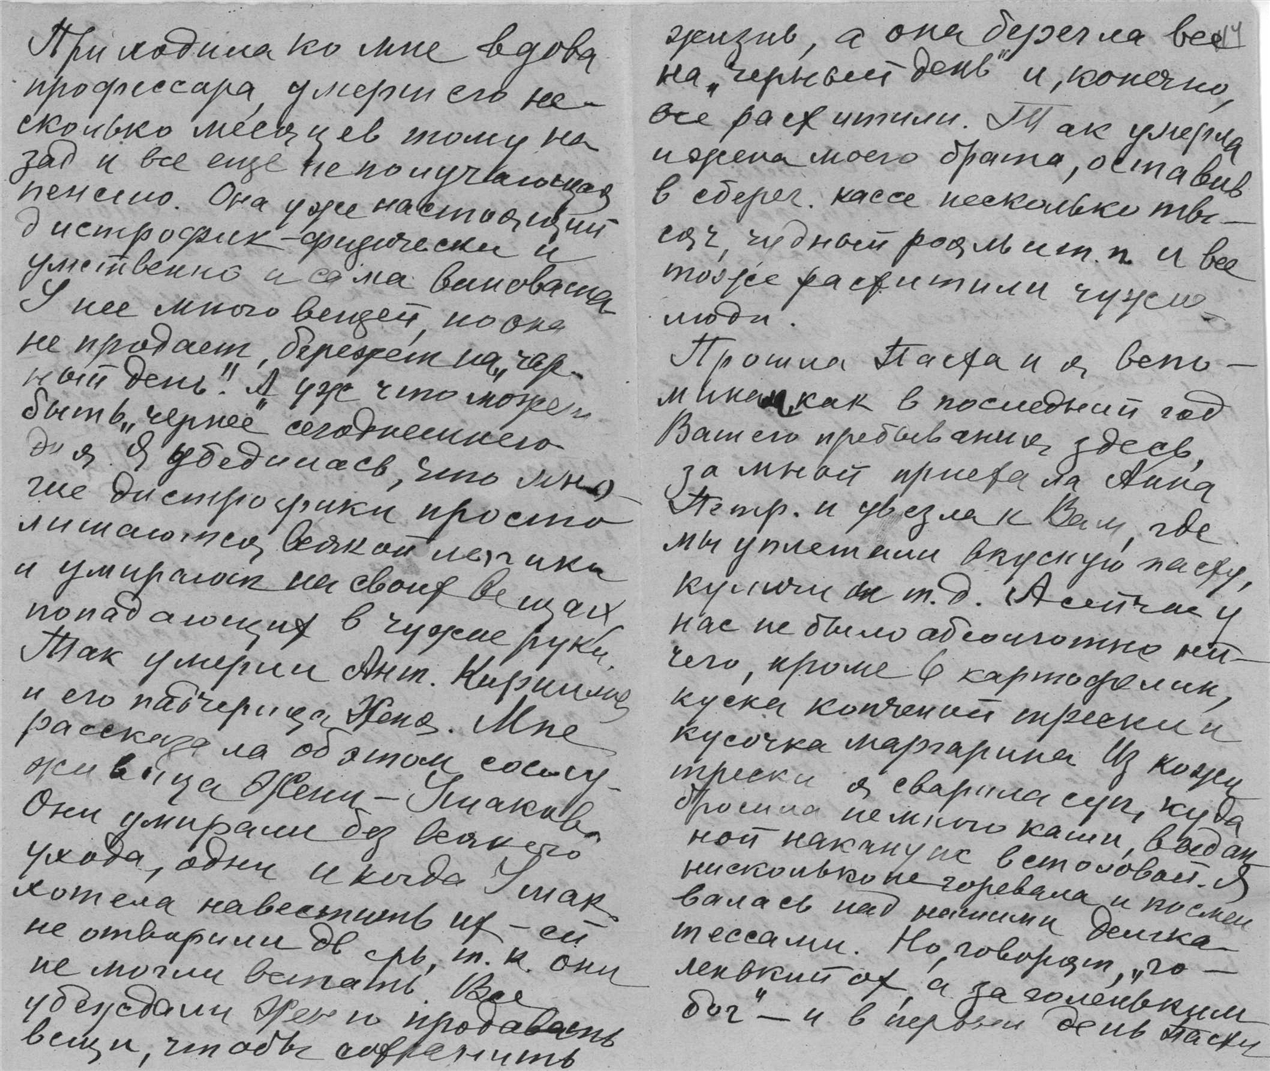 Приходила ко мне вдова
профессора, умершего не-
сколько месяцев тому на
зад и все еще не получающая
пенсию. Она уже настоящий
дистрофик – физически и
умственно и сама виновата
У нее много вещей, но она
не продает, бережет на „чер-
ный день". А уж что может
быть „чернее" сегодняшнего
дня. Я убедилась, что мно-
гие дистрофики просто
лишаются всякой логики
и умирают на своих вещах,
попадающих в чужие руки.
Так умерли Ант. Кириллов.
и его падчерица Женя. Мне
рассказала об этом сослу-
живица Жени – Ушакова
Они умирали без всякого
ухода, одни и когда Ушак.
хотела навестить их – ей
не отворили дверь, т. к. они
не могли встать. Все
убеждали Женю продавать
вещи, чтобы сохранить
жизнь, а она берегла все 14
на „черный день" и, конечно,
все расхитили. Так умерла
и жена моего брата, оставив
в сберег. кассе несколько ты-
сяч, чудный рояль и т. п. и все
тоже расхитили чужие
люди.
Прошла Пасха и я вспо-
минала, как в последний год
Вашего пребывания здесь,
за мной приехала Анна
Петр. и увезла к Вам, где
мы уплетали вкусную пасху,
куличи и т. д. А сейчас у
нас не было абсолютно ни-
чего, кроме 6 картофелин,
куска копченой трески и
кусочка маргарина Из кожи
трески я сварила суп, куда
бросила немного каши, выдан
ной накануне в столовой. Я
нисколько не горевала и посмеи
валась над нашими делика-
тессами. Но, говорят, „го-
ленький ох, а за голеньким
бог" – и в первый день Пасхи